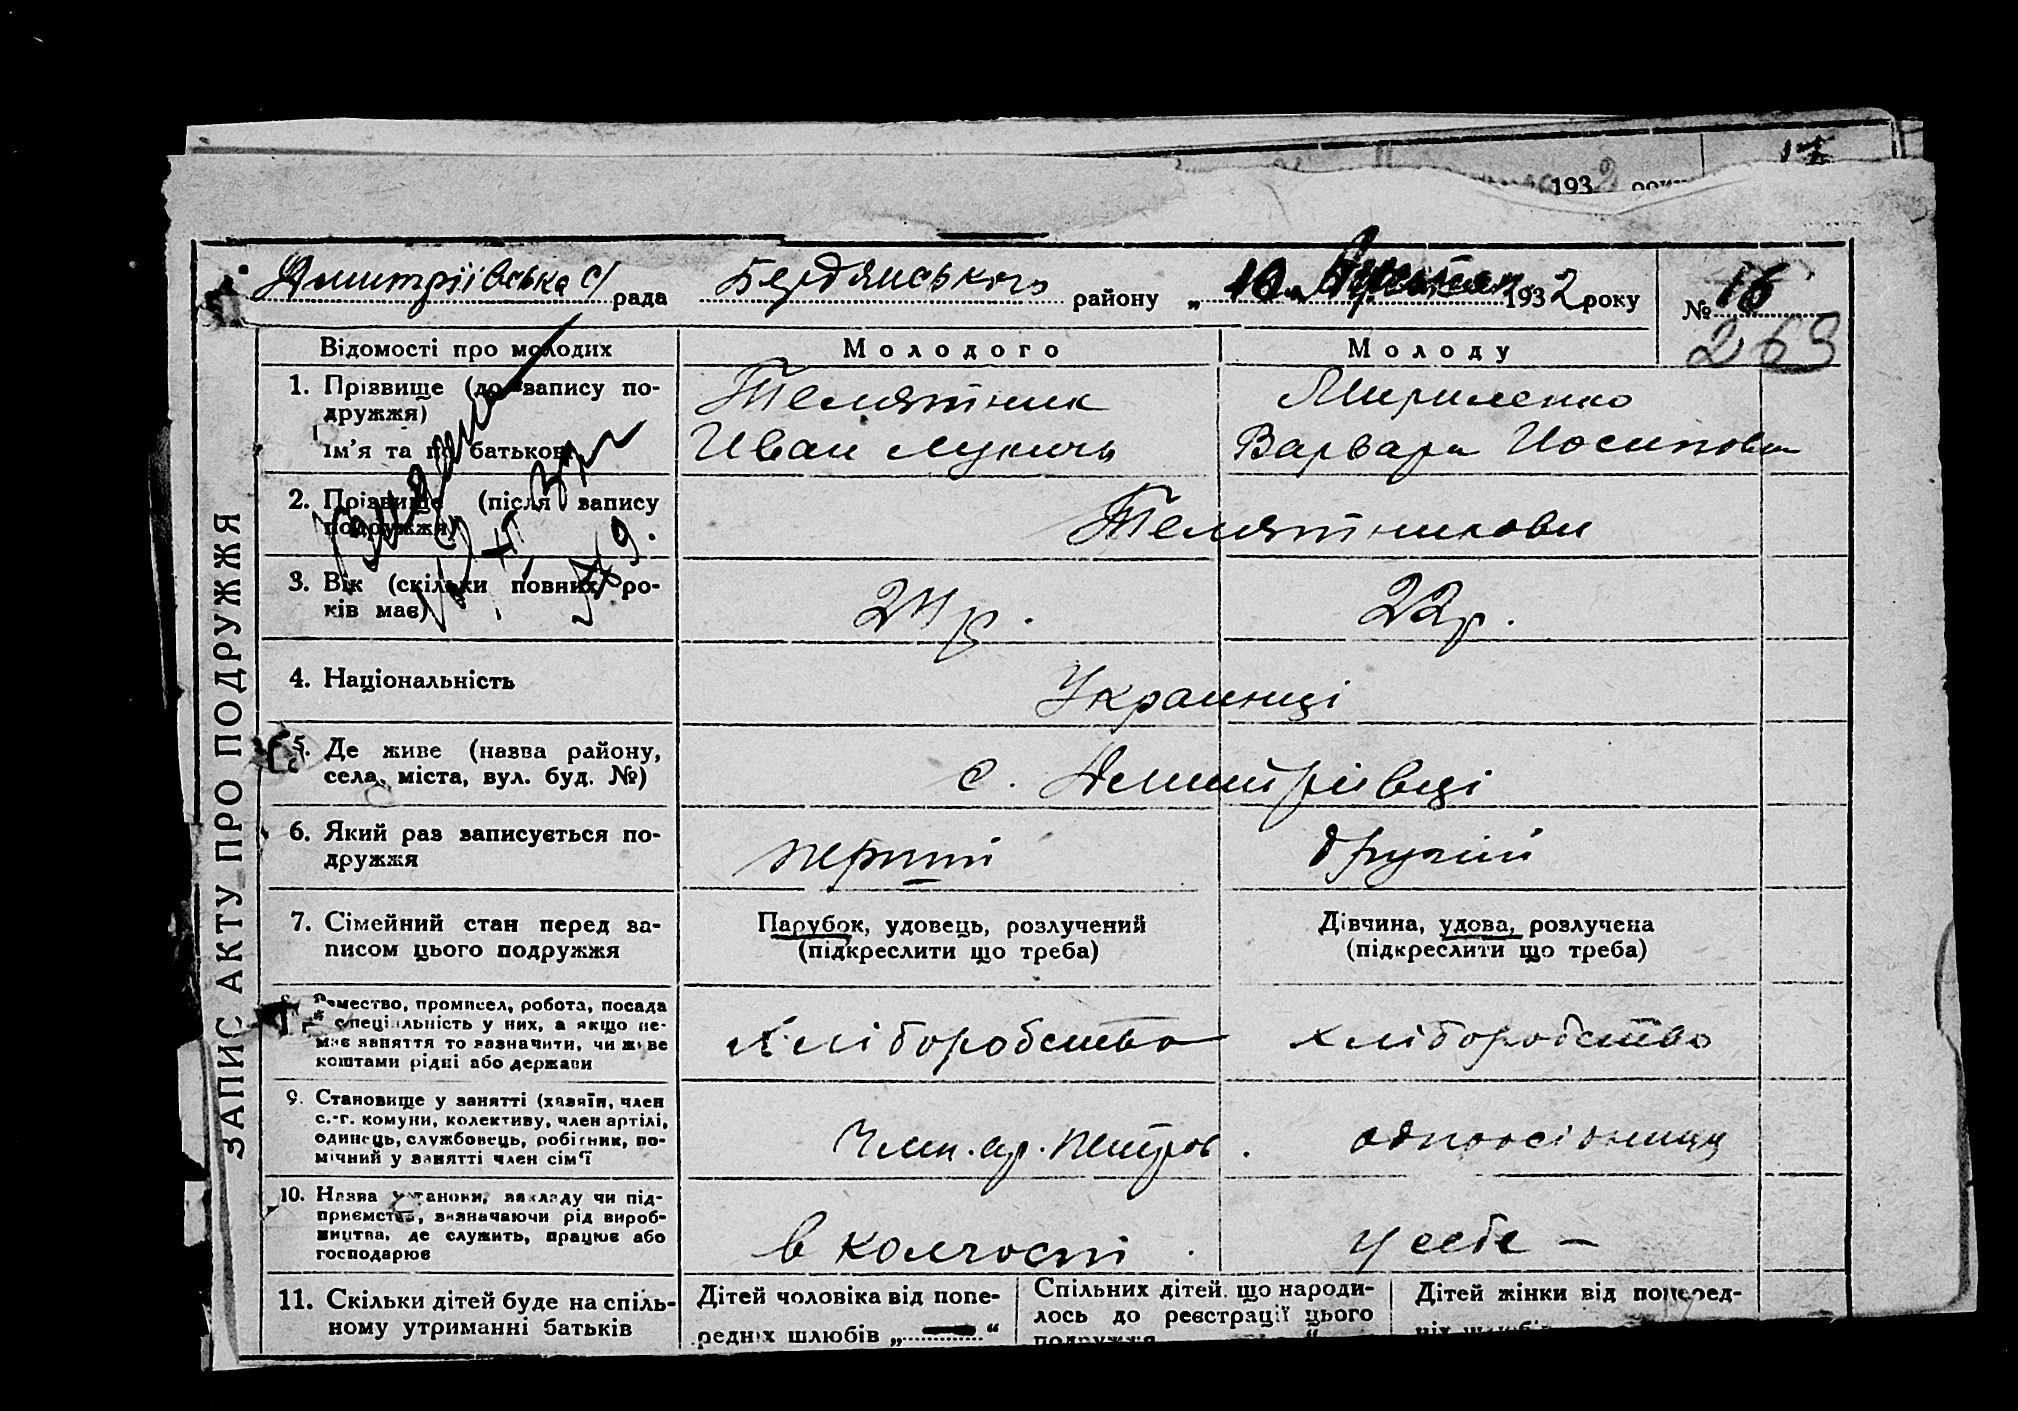 193 2 року
Дмитріївська с/ рада Бердянського району „ 10 “ 193 2 року № 16
269
ЗАПИС АКТУ ПРО ПОДРУЖЖЯ
Відомості про молодих Молодого Молоду
1. Прізвище (до запису по-
дружжя)
Телятник Мириленко
Ім'я та по батькові Иван Лукичь Варвара Иосиповна
2. Прізвище (після запису
подружжя)
Телятникови
3. Вік (скільки повних ро-
ків має)
24 р. 22 р.
4. Національність Украинці
5. Де живе (назва району,
села, міста, вул. буд. №)
с. Дмитрівці
6. Який раз записується по-
дружжя
перший другий
7. Сімейний стан перед за-
писом цього подружжя
Парубок, удовець, розлучений
(підкреслити що треба)
Дівчина, удова, розлучена
(підкреслити що треба)
8. Ремество, промисел, робота, посада
й спеціяльність у них, а якщо не-
має заняття то зазначити, чи живе
коштами рідні або держави
Хліборобство хліборобство
9. Становище у занятті (хазяїн, член
с.-г. комуни, колективу, член артілі,
одинець, службовець, робітник, по-
мічний у занятті член сім'ї
Член. ар. Петров. одноосібниця
10. Назва установи, закладу чи під-
приємства, зазначаючи рід вироб-
ництва, де служить, працює або
господарює
в колгоспі у себе –
11. Скільки дітей буде на спіль-
ному утриманні батьків
Дітей чоловіка від попе-
редніх шлюбів „ — “
Спільних дітей, що народи-
лось до реєстрації цього
подружжя “
Дітей жінки від поперед-
ніх шлюбів